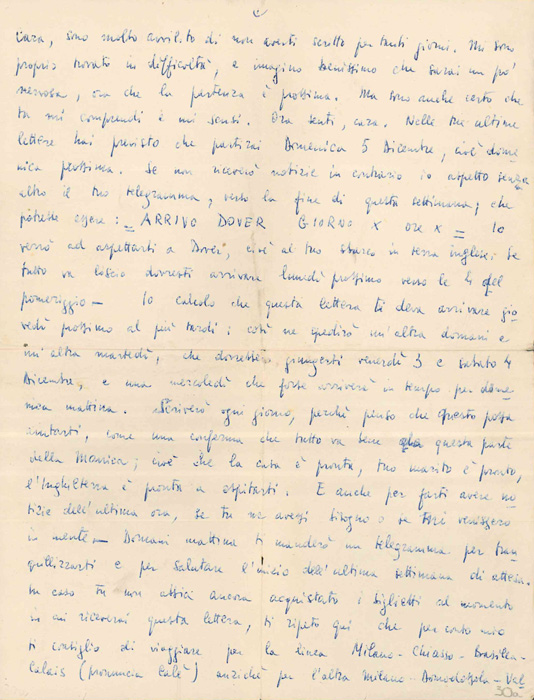 Cara, sono molto avvilito di non averti scritto per tanti giorni. Mi sono
proprio trovato in difficoltà, e imagino benissimo che sarai un po'
nervosa, ora che la partenza è prossima. Ma sono anche certo che
tu mi comprendi e mi scusi. Ora senti, cara. Nelle tue ultime
lettere hai previsto che partirai Domenica 5 Dicembre, cioè dome-
nica prossima. Se non riceverò notizie in contrario io aspetto senza
altro il tuo telegramma, verso la fine di questa settimana; che
potrebbe essere: = ARRIVO DOVER GIORNO X ORE X = Io
verrò ad aspettarti a Dover, cioè al tuo sbarco in terra inglese: Se
tutto va liscio dovresti arrivare lunedì prossimo verso le 4 del
pomeriggio — Io calcolo che questa lettera ti deva arrivare gio-
vedì prossimo al più tardi: così ne spedirò un'altra domani e
un'altra martedì, che dovrebbero giungerti venerdì 3 e sabato 4
Dicembre, e una mercoledì che forse arriverà in tempo per dome-
nica mattina. Scriverò ogni giorno, perché penso che questo possa
aiutarti, come una conferma che tutto va bene da questa parte
della Manica; cioè che la casa è pronta, tuo marito è pronto,
l'Inghilterra è pronta a ospitarti. E anche per farti avere no-
tizie dell'ultima ora, se tu ne avessi bisogno o se mi venissero
in mente — Domani mattina ti manderò un telegramma per tran-
quillizzarti e per salutare l'inizio dell'ultima settimana di attesa.
In caso tu non abbia ancora acquistato i biglietti al momento
in cui riceverai questa lettera, ti ripeto qui che per conto mio
ti consiglio di viaggiare per la linea Milano - Chiasso - Basilea -
Calais (pronuncia Calè) anziché per l'altra Milano - Domodossola - Val
30a